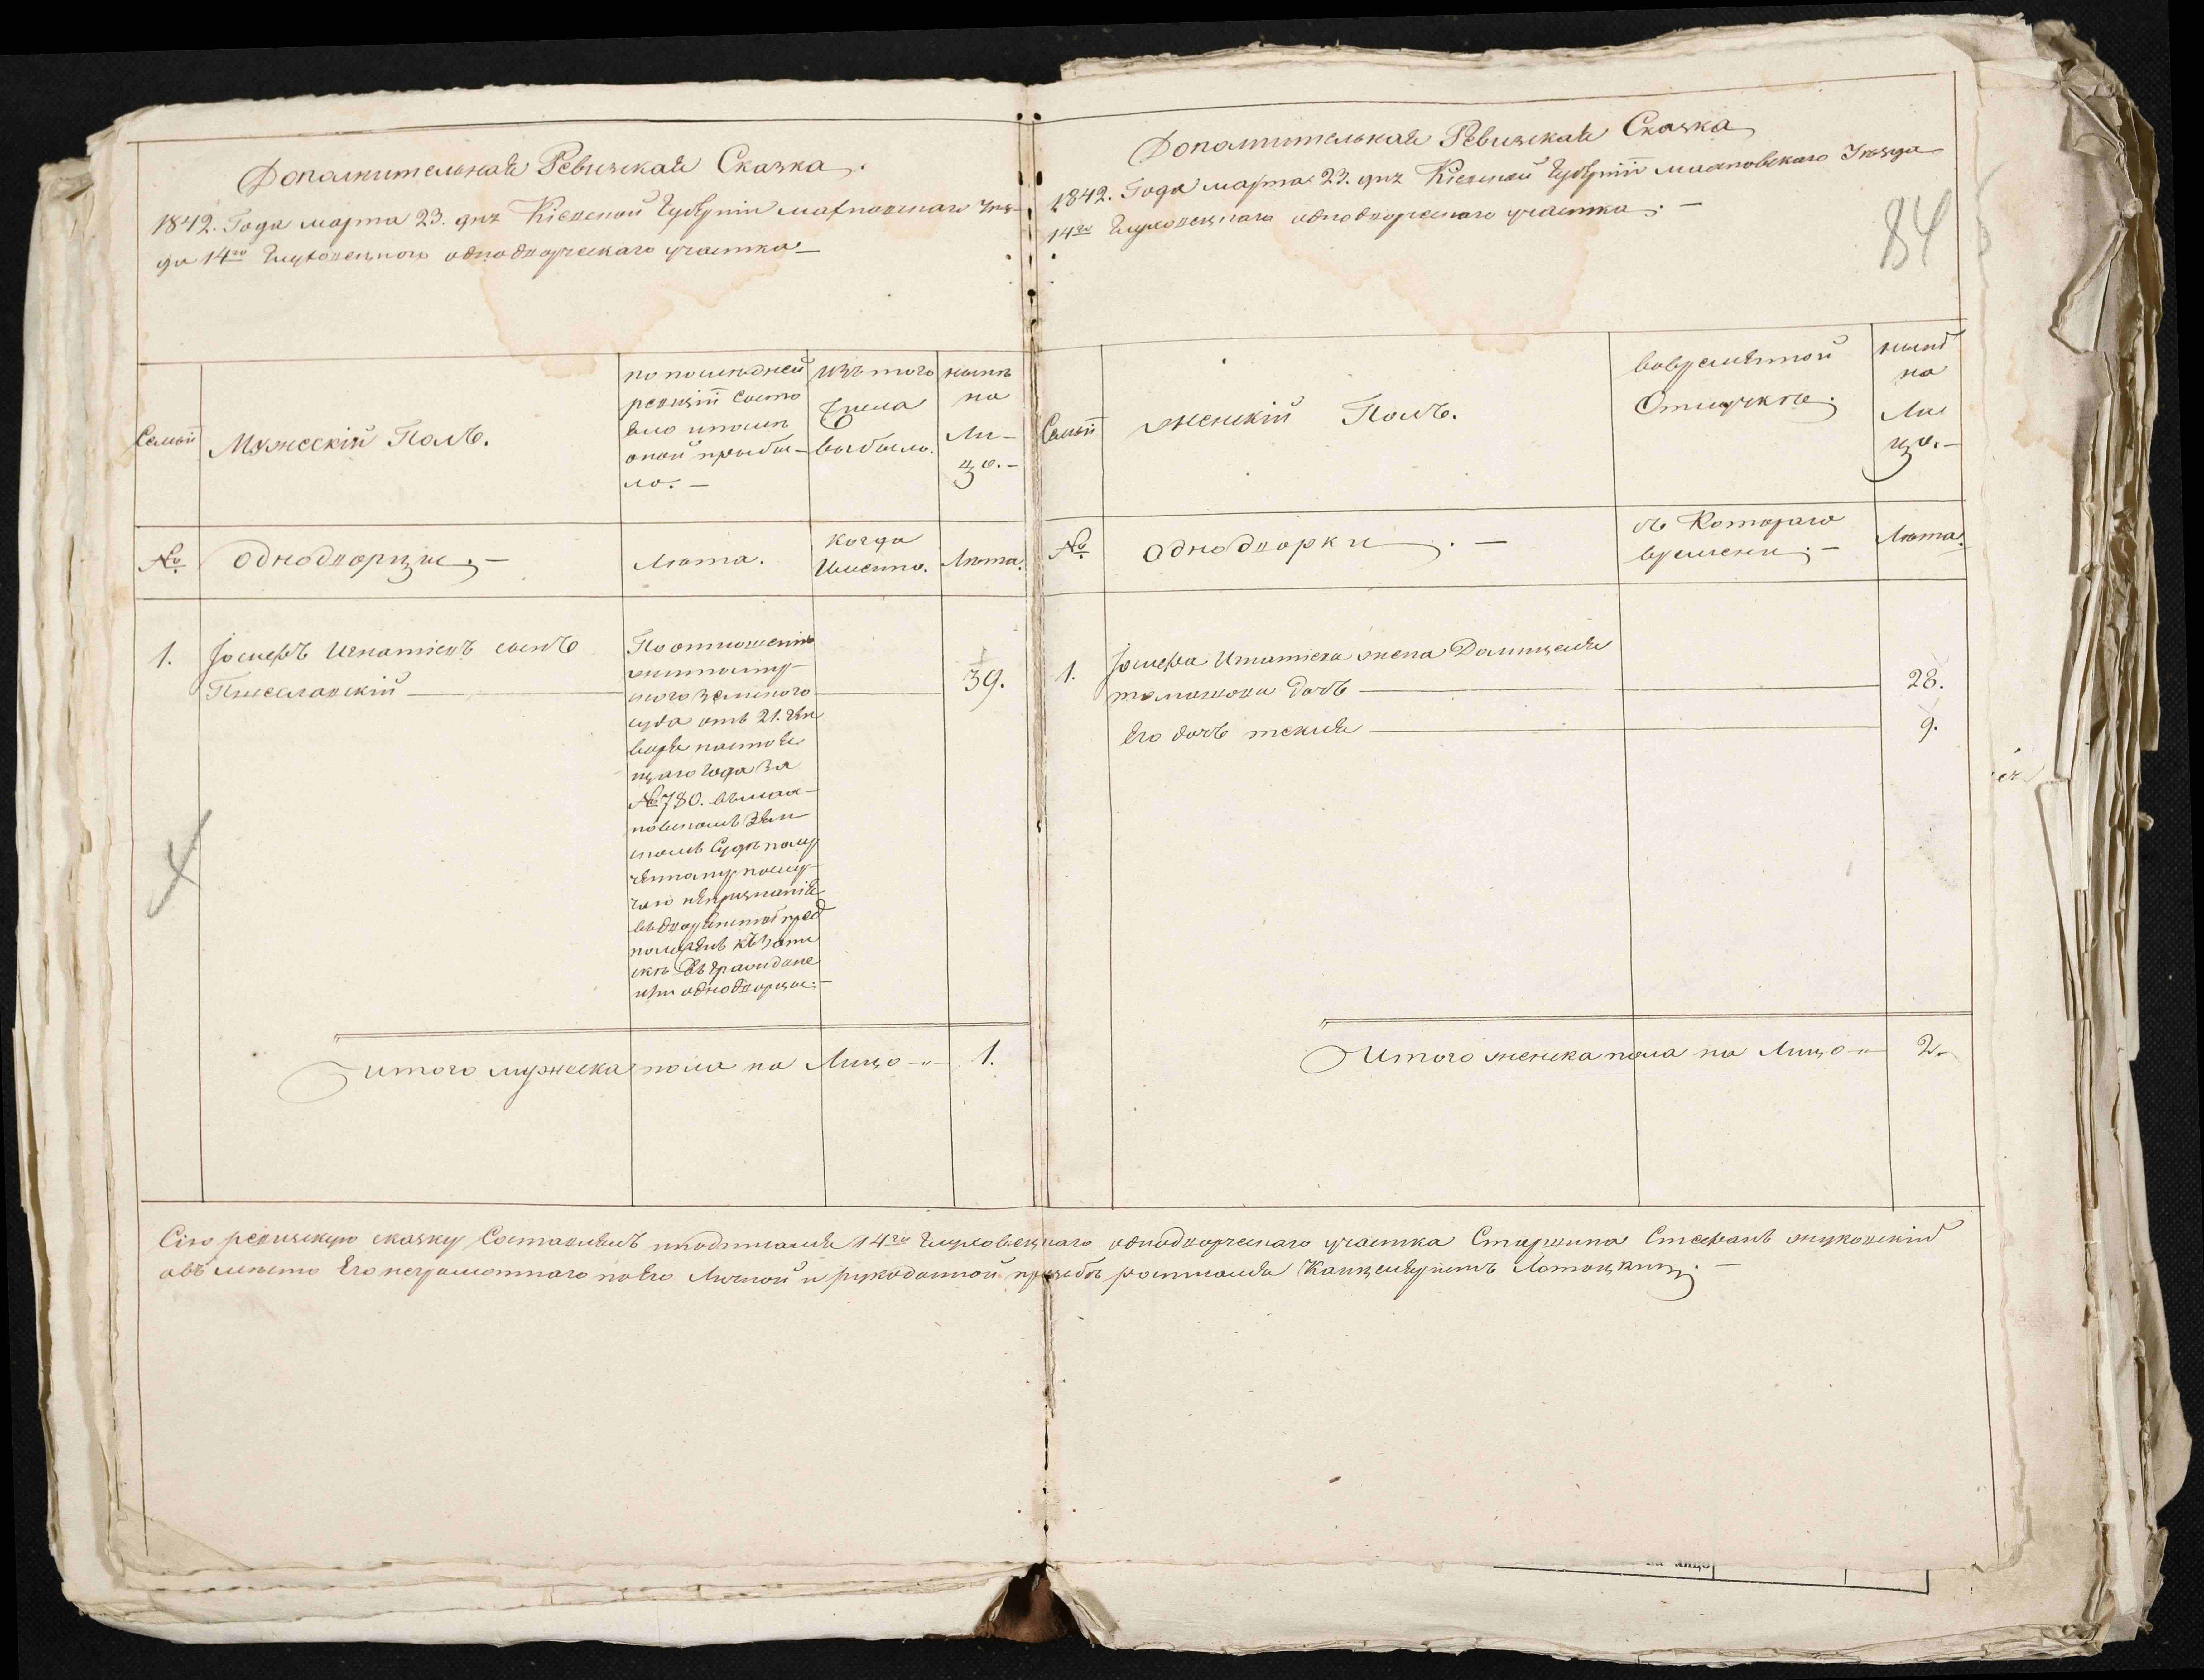 Дополнительная Ревизская Сказка.
1842. Года марта 23. дня Кіевской Губерніи махновскаго Уез-
да 14го Глуховецкого однодворческаго участка —
Семьи
Мужескій Полъ.
по последней
ревизіи состо
яло и после
оной прибы-
ло. —
Изъ того
Числа
выбыло.
ныне
на
Ли-
цо. —
№.
Однодворцы. —
Лета.
Когда
Именно.
Лета.
1.
Іосифъ Игнатіевъ сынъ
39.
По отношенію
ного земского
суда отъ 21. Ген
варя настоя
щаго года за
№ 780. въ мах-
новскомъ Зем
скомъ Суде полу
однодворцы. —
Итого мужеска пола на Лицо — " — 1.
Дополнительная Ревизская Сказка
1842. Года марта 23. дня Кіевской Губерніи махновскаго Уезда
14го Глуховецкаго однодворческаго участка. —
84
Семьи
женскій Полъ.
вовременной
Отлучке.
ныне
на
Ли
цо. —
№.
Однодворки. —
съ Котораго
времени. —
Лета.
1.
Іосифа Игнатіева жена Домицеля
томашова дочь — 28.
Его дочь текля — 9.
Итого женска пола на Лицо — " — 2.
Сію ревизскую сказку Составилъ и подписалъ 14го Глуховецкаго однодворческаго участка Старшина Стефанъ жуковскій
а въ место Его неграмотнаго по его Личной и рукоданной прозьбе росписался Канцеляристъ Лотоцкий. —
на лицо